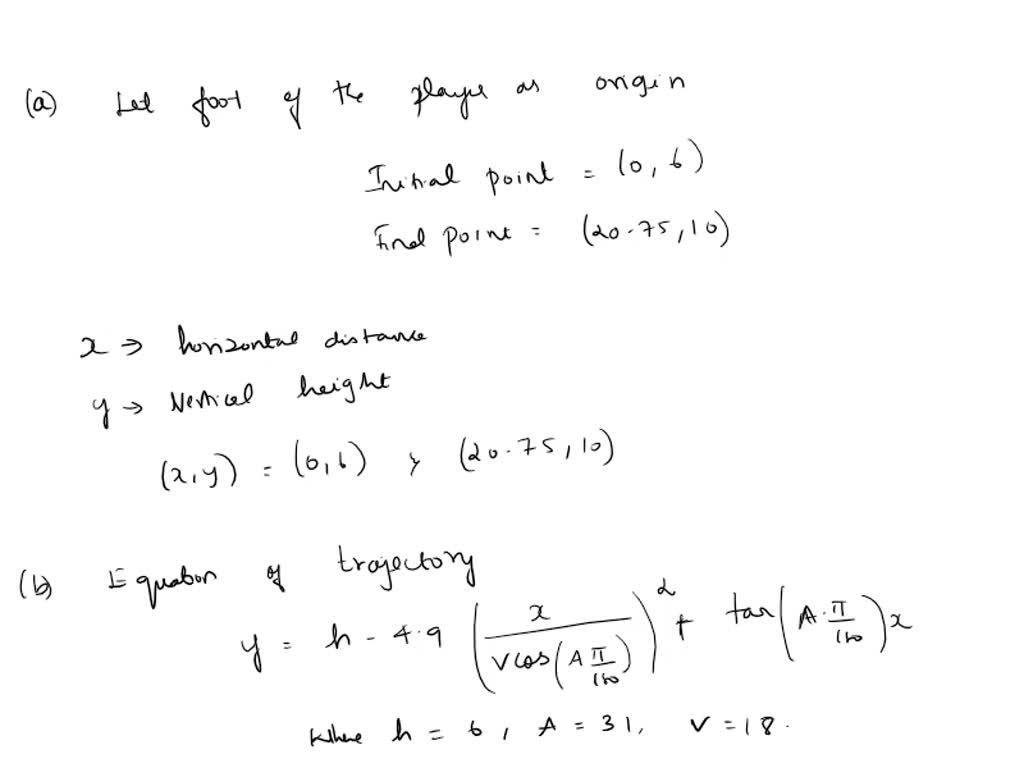 (a) Let foot of the player as origin
Initial point = (0, 6)
Final point = (20.75, 10)
x → horizontal distance
y → Vertical height
(x, y) = (0, 6) , (20.75, 10)
(b) Equation of trajectory
y = h - 4.9 (x / (V cos(A π/180)))² + tan(A · π/180) x
Where h = 6, A = 31, V = 18.